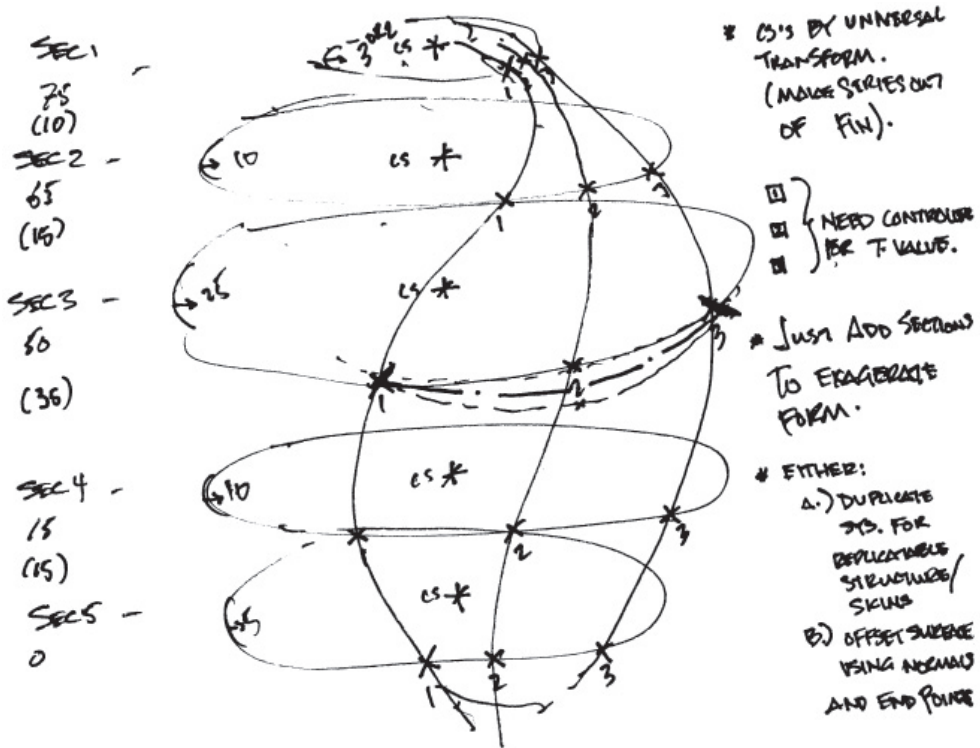 SEC 1
75
(10)
SEC 2 -
65
(15)
SEC 3 -
50
(35)
SEC 4 -
15
(15)
SEC 5 -
0
3 OR 2
cs
1
2
3
10
cs
1
2
3
25
cs
1
2
3
10
cs
1
2
3
5
cs
1
2
3
* CS'S BY UNIVERSAL
TRANSFORM.
(MAKE SERIES OUT
OF FIN).
1
2
3
NEED CONTROLLER
FOR T. VALUE.
* JUST ADD SECTIONS
TO EXAGERATE
FORM.
* EITHER:
A.) DUPLICATE
SYS. FOR
REPLICATABLE
STRUCTURE/
SKINS
B.) OFFSET SURFACE
USING NORMALS
AND END POINTS